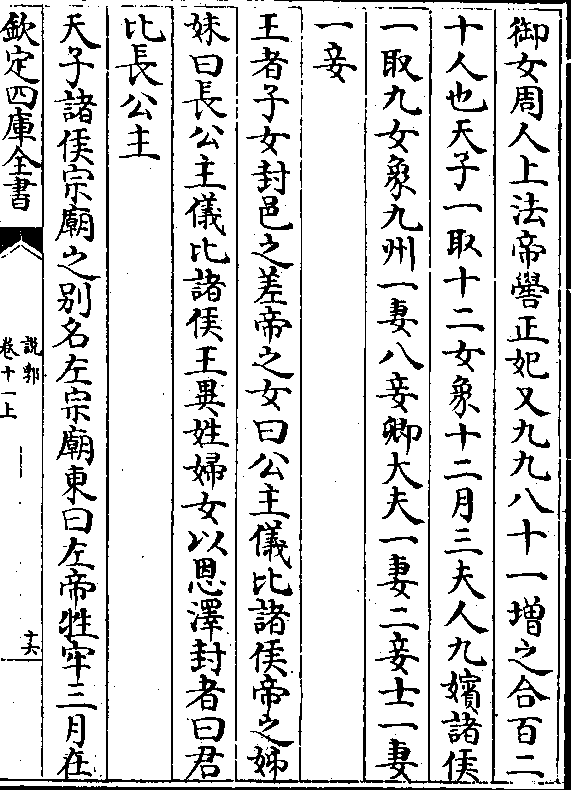 御女周人上法帝嚳正妃又九九八十一增之合百二
十人也天子一取十二女象十二月三夫人九嬪諸侯
一取九女象九州一妻八妾卿大夫一妻二妾士一妻
一妾
王者子女封邑之差帝之女曰公主儀比諸侯帝之姊
妹曰長公主儀比諸侯王異姓婦女以恩澤封者曰君
比長公主
天子諸侯宗廟之别名左宗廟東曰左帝牲牢三月在
欽定四庫全書
說郛
卷十一上
十六